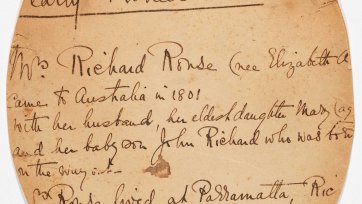 early
Mrs Richard Rouse (nee Elizabeth A
came to Australia in 1801
with her husband, her eldest daughter Mary (ag
and her baby son John Richard who was born
on the way out.
Mrs Rouse lived at Parramatta, Ric